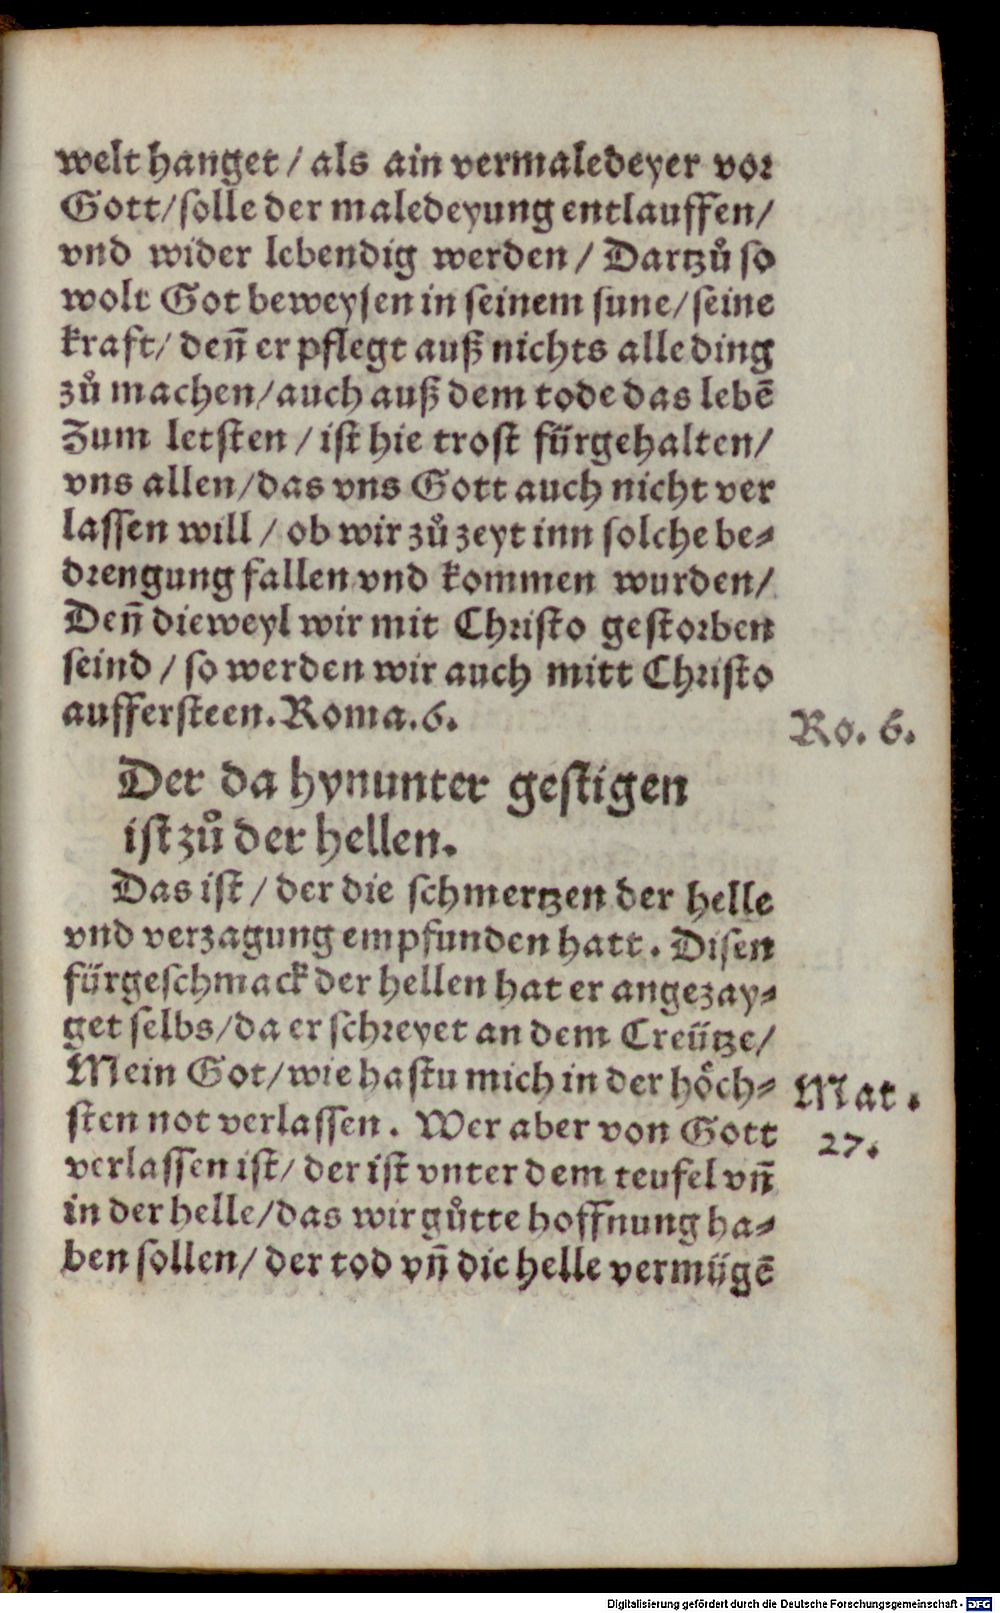 welt hanget / als ain vermaledeyer vor
Gott/ solle der maledeyung entlauffen/
vnd wider lebendig werden / Dartzů so
wolt Got beweysen in seinem sune/ seine
kraft/ deñ er pflegt auß nichts alle ding
zů machen/ auch auß dem tode das lebē
Zum letsten / ist hie trost fürgehalten/
vns allen/ das vns Gott auch nicht ver
lassen will / ob wir zů zeyt inn solche be⸗
drengung fallen vnd kommen wurden/
Deñ dieweyl wir mit Christo gestorben
seind / so werden wir auch mitt Christo
auffersteen. Roma. 6.
Ro. 6.
Der da hynunter gestigen
ist zů der hellen.
Das ist / der die schmertzen der helle
vnd verzagung empfunden hatt. Disen
fürgeschmack der hellen hat er angezay⸗
get selbs/ da er schreyet an dem Creütze/
Mein Got/ wie hastu mich in der hôch⸗
sten not verlassen. Wer aber von Gott
verlassen ist/ der ist vnter dem teufel vñ
in der helle/ das wir gůtte hoffnung ha⸗
ben sollen/ der tod vñ die helle vermügē
Mat.
27.
Digitalisierung gefördert durch die Deutsche Forschungsgemeinschaft - DFG